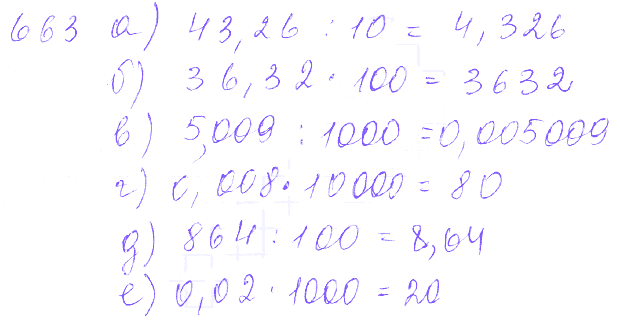 663 а) 43,26 : 10 = 4,326
б) 36,32 · 100 = 3632
в) 5,009 : 1000 = 0,005009
г) 0,008 · 10000 = 80
д) 864 : 100 = 8,64
е) 0,02 · 1000 = 20